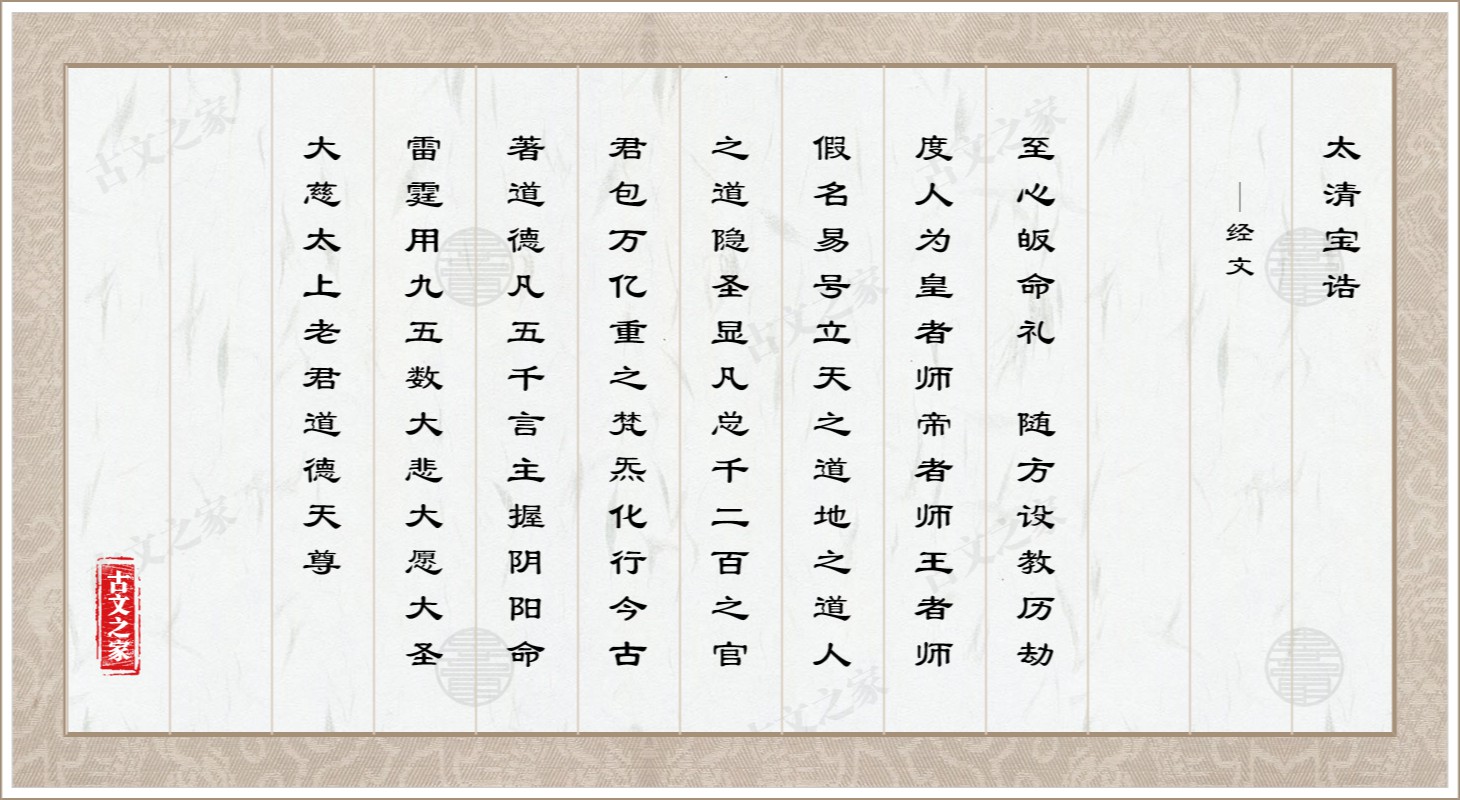 太清宝诰
—经文
至心皈命礼　随方设教历劫
度人为皇者师帝者师王者师
假名易号立天之道地之道人
之道隐圣显凡总千二百之官
君包万亿重之梵炁化行今古
著道德凡五千言主握阴阳命
雷霆用九五数大悲大愿大圣
大慈太上老君道德天尊
古文之家